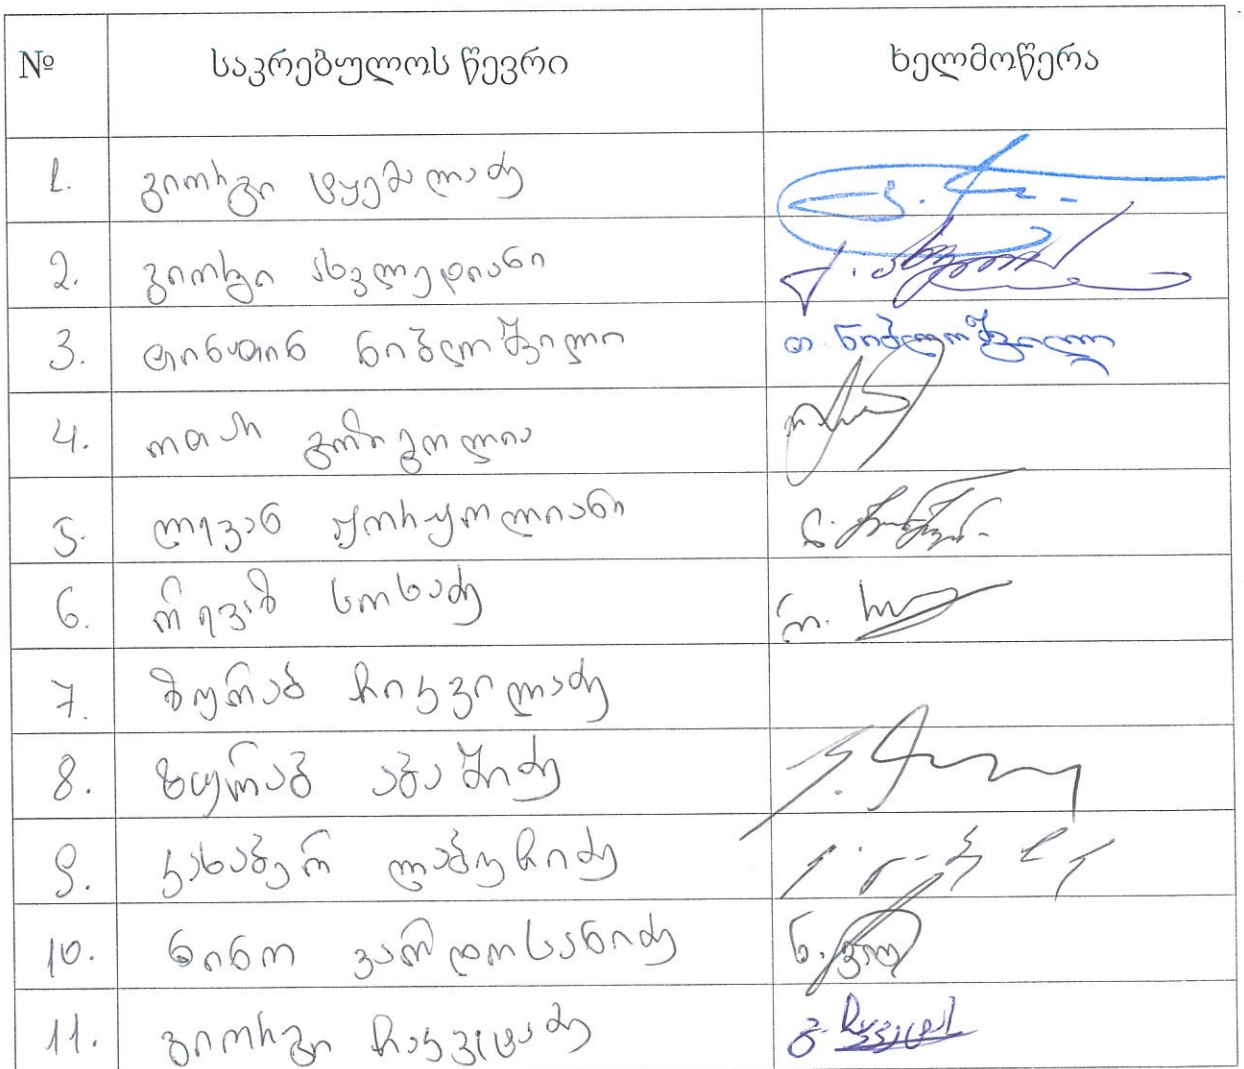 № საკრებულოს წევრი ხელმოწერა
1. გიორგი ტყემალაძე
2. გიორგი ახვლედიანი
3. თინათინ ნიბლოშვილი თ. ნიბლოშვილი
4. ოთარ გორგოლია
5. ლევან ჟორჟოლიანი
6. რევაზ სოხაძე
7. ზურაბ ჩიკვილაძე
8. ზურაბ აბაშიძე
9. კახაბერ ლაბუჩიძე
10. ნინო ვარდოსანიძე
11. გიორგი ჩაკვეტაძე